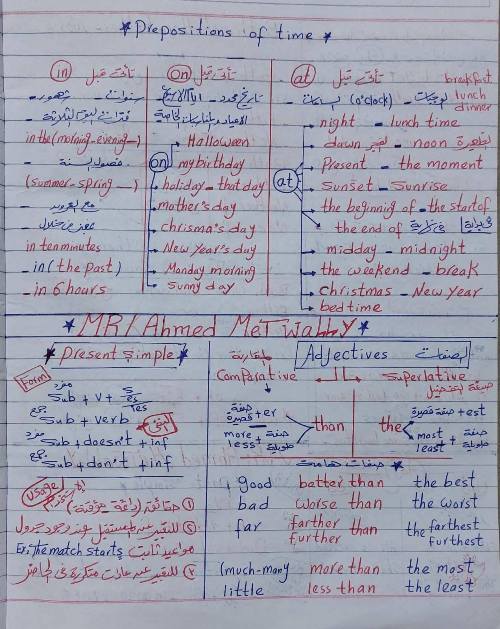 ★ Prepositions of time ★
in تأتى قبل
سنوات - شهور
فترات اليوم الثلاثة
in the (morning - evening - )
فصول السنة
(summer - spring - )
مع القرون
in ten minutes
- in (the past)
- in 6 hours
on تأتى قبل
تاريخ محدد - أيام الأسبوع
الأعياد والمناسبات الخاصة
Halloween
on my birthday
holiday - that day
mother's day
chrisma's day
New year's day
Monday morning
Sunny day
at تأتى قبل
breakfast
lunch
dinner
الساعات (o'clock) - الوجبات
night - lunch time
dawn الفجر - noon الظهيرة
Present - the moment
at sunset - Sunrise
the beginning of - the start of
the end of فى نهاية فى بداية
midday - midnight
the weekend - break
christmas - New year
bed time
★ MR/Ahmed MeTwally ★
★ Present Simple ★
Form
مفرد Sub + v + s es ies
جمع Sub + verb
النفى
مفرد Sub + doesn't + inf
جمع Sub + don't + inf
Usage الاستخدام
① حقائق
② للتعبير عن المستقبل عند وجود جدول
مواعيد ثابت Ex: The match starts
③ للتعبير عن عادات متكررة فى الحاضر
Adjectives الصفات
المقارنة
Comparative
Superlative
صفة قصيرة + er
more less + صفة طويلة
than
the
صفة قصيرة + est
most least + صفة طويلة
صفات هامة ★
good batter than the best
bad worse than the worst
far farther further than the farthest furthest
(much - many more than the most
little less than the least